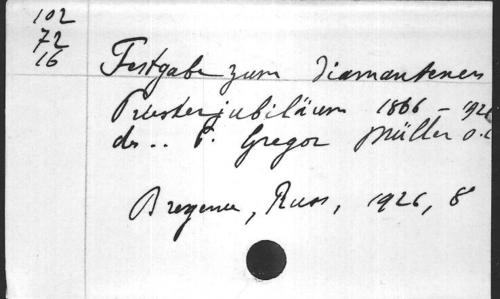 102
72
16
Festgabe zum diamantenen
Priesterjubiläum 1866 – 192
des .. P. Gregor Müller O.C
Bregenz, Russ, 1926, 8